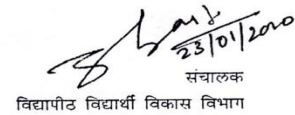 23/01/2020
संचालक
विद्यापीठ विद्यार्थी विकास विभाग